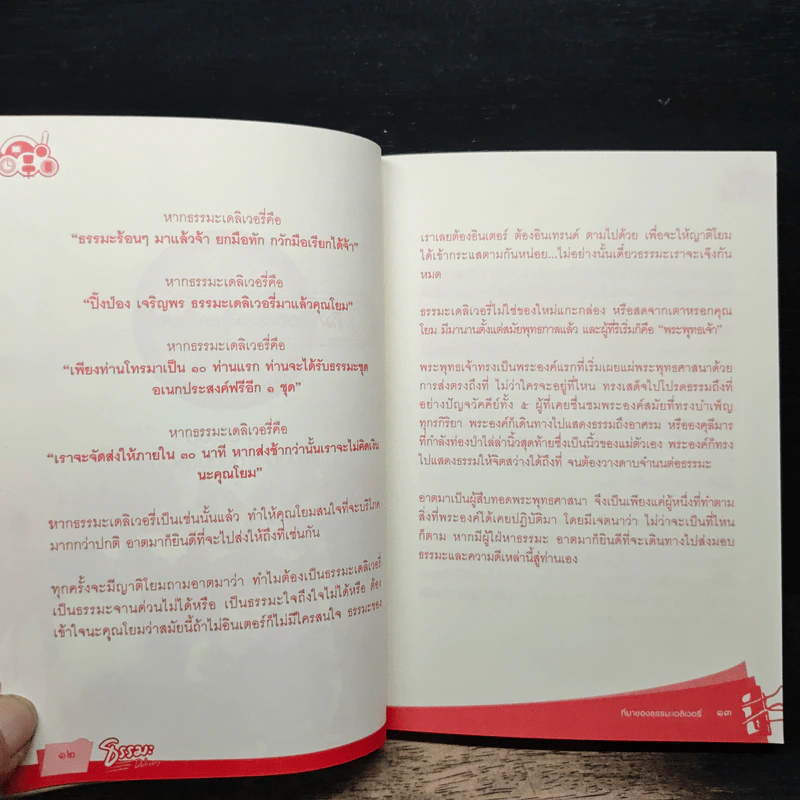 หากธรรมะเดลิเวอรี่คือ
“ธรรมะร้อนๆ มาแล้วจ้า ยกมือทัก กวักมือเรียกได้จ้า”
หากธรรมะเดลิเวอรี่คือ
“ปิ๊งป่อง เจริญพร ธรรมะเดลิเวอรี่มาแล้วคุณโยม”
หากธรรมะเดลิเวอรี่คือ
“เพียงท่านโทรมาเป็น ๑๐ ท่านแรก ท่านจะได้รับธรรมะชุด
อเนกประสงค์ฟรีอีก ๑ ชุด”
หากธรรมะเดลิเวอรี่คือ
“เราจะจัดส่งให้ภายใน ๓๐ นาที หากส่งช้ากว่านั้นเราจะไม่คิดเงิน
นะคุณโยม”
หากธรรมะเดลิเวอรี่เป็นเช่นนั้นแล้ว ทำให้คุณโยมสนใจที่จะบริโภค
มากกว่าปกติ อาตมาก็ยินดีที่จะไปส่งให้ถึงที่เช่นกัน
ทุกครั้งจะมีญาติโยมถามอาตมาว่า ทำไมต้องเป็นธรรมะเดลิเวอรี่
เป็นธรรมะจานด่วนไม่ได้หรือ เป็นธรรมะใจถึงใจไม่ได้หรือ ต้อง
เข้าใจนะคุณโยมว่าสมัยนี้ถ้าไม่อินเตอร์ก็ไม่มีใครสนใจ ธรรมะของ
๑๒
ธรรมะ
Delivery
เราเลยต้องอินเตอร์ ต้องอินเทรนด์ ตามไปด้วย เพื่อจะให้ญาติโยม
ได้เข้ากระแสตามกันหน่อย...ไม่อย่างนั้นเดี๋ยวธรรมะเราจะเจ๊งกัน
หมด
ธรรมะเดลิเวอรี่ไม่ใช่ของใหม่แกะกล่อง หรือสดจากเตาหรอกคุณ
โยม มีมานานตั้งแต่สมัยพุทธกาลแล้ว และผู้ที่ริเริ่มก็คือ “พระพุทธเจ้า”
พระพุทธเจ้าทรงเป็นพระองค์แรกที่เริ่มเผยแผ่พระพุทธศาสนาด้วย
การส่งตรงถึงที่ ไม่ว่าใครจะอยู่ที่ไหน ทรงเสด็จไปโปรดธรรมถึงที่
อย่างปัญจวัคคีย์ทั้ง ๕ ผู้ที่เคยชื่นชมพระองค์สมัยที่ทรงบำเพ็ญ
ทุกรกิริยา พระองค์ก็เดินทางไปแสดงธรรมถึงอาศรม หรือองคุลีมาร
ที่กำลังท่องป่าไล่ล่านิ้วสุดท้ายซึ่งเป็นนิ้วของแม่ตัวเอง พระองค์ก็ทรง
ไปแสดงธรรมให้จิตสว่างได้ถึงที่ จนต้องวางดาบจำนนต่อธรรมะ
อาตมาเป็นผู้สืบทอดพระพุทธศาสนา จึงเป็นเพียงแค่ผู้หนึ่งที่ทำตาม
สิ่งที่พระองค์ได้เคยปฏิบัติมา โดยมีเจตนาว่า ไม่ว่าจะเป็นที่ไหน
ก็ตาม หากมีผู้ใฝ่หาธรรมะ อาตมาก็ยินดีที่จะเดินทางไปส่งมอบ
ธรรมะและความดีเหล่านี้สู่ท่านเอง
ที่มาของธรรมะเดลิเวอรี่ ๑๓